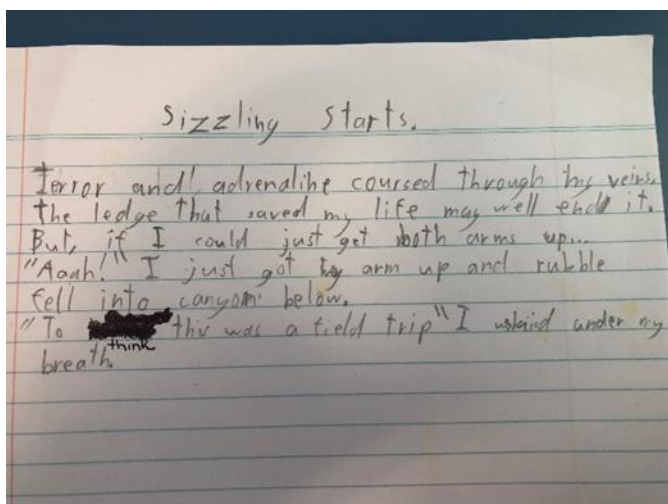 Sizzling Starts.
Terror and adrenaline coursed through my veins.
the ledge that saved my life may well end it.
But, if I could just get both arms up...
"Aaah!" I just got my arm up and rubble
fell into canyon below.
"To think this was a field trip" I under my
breath.